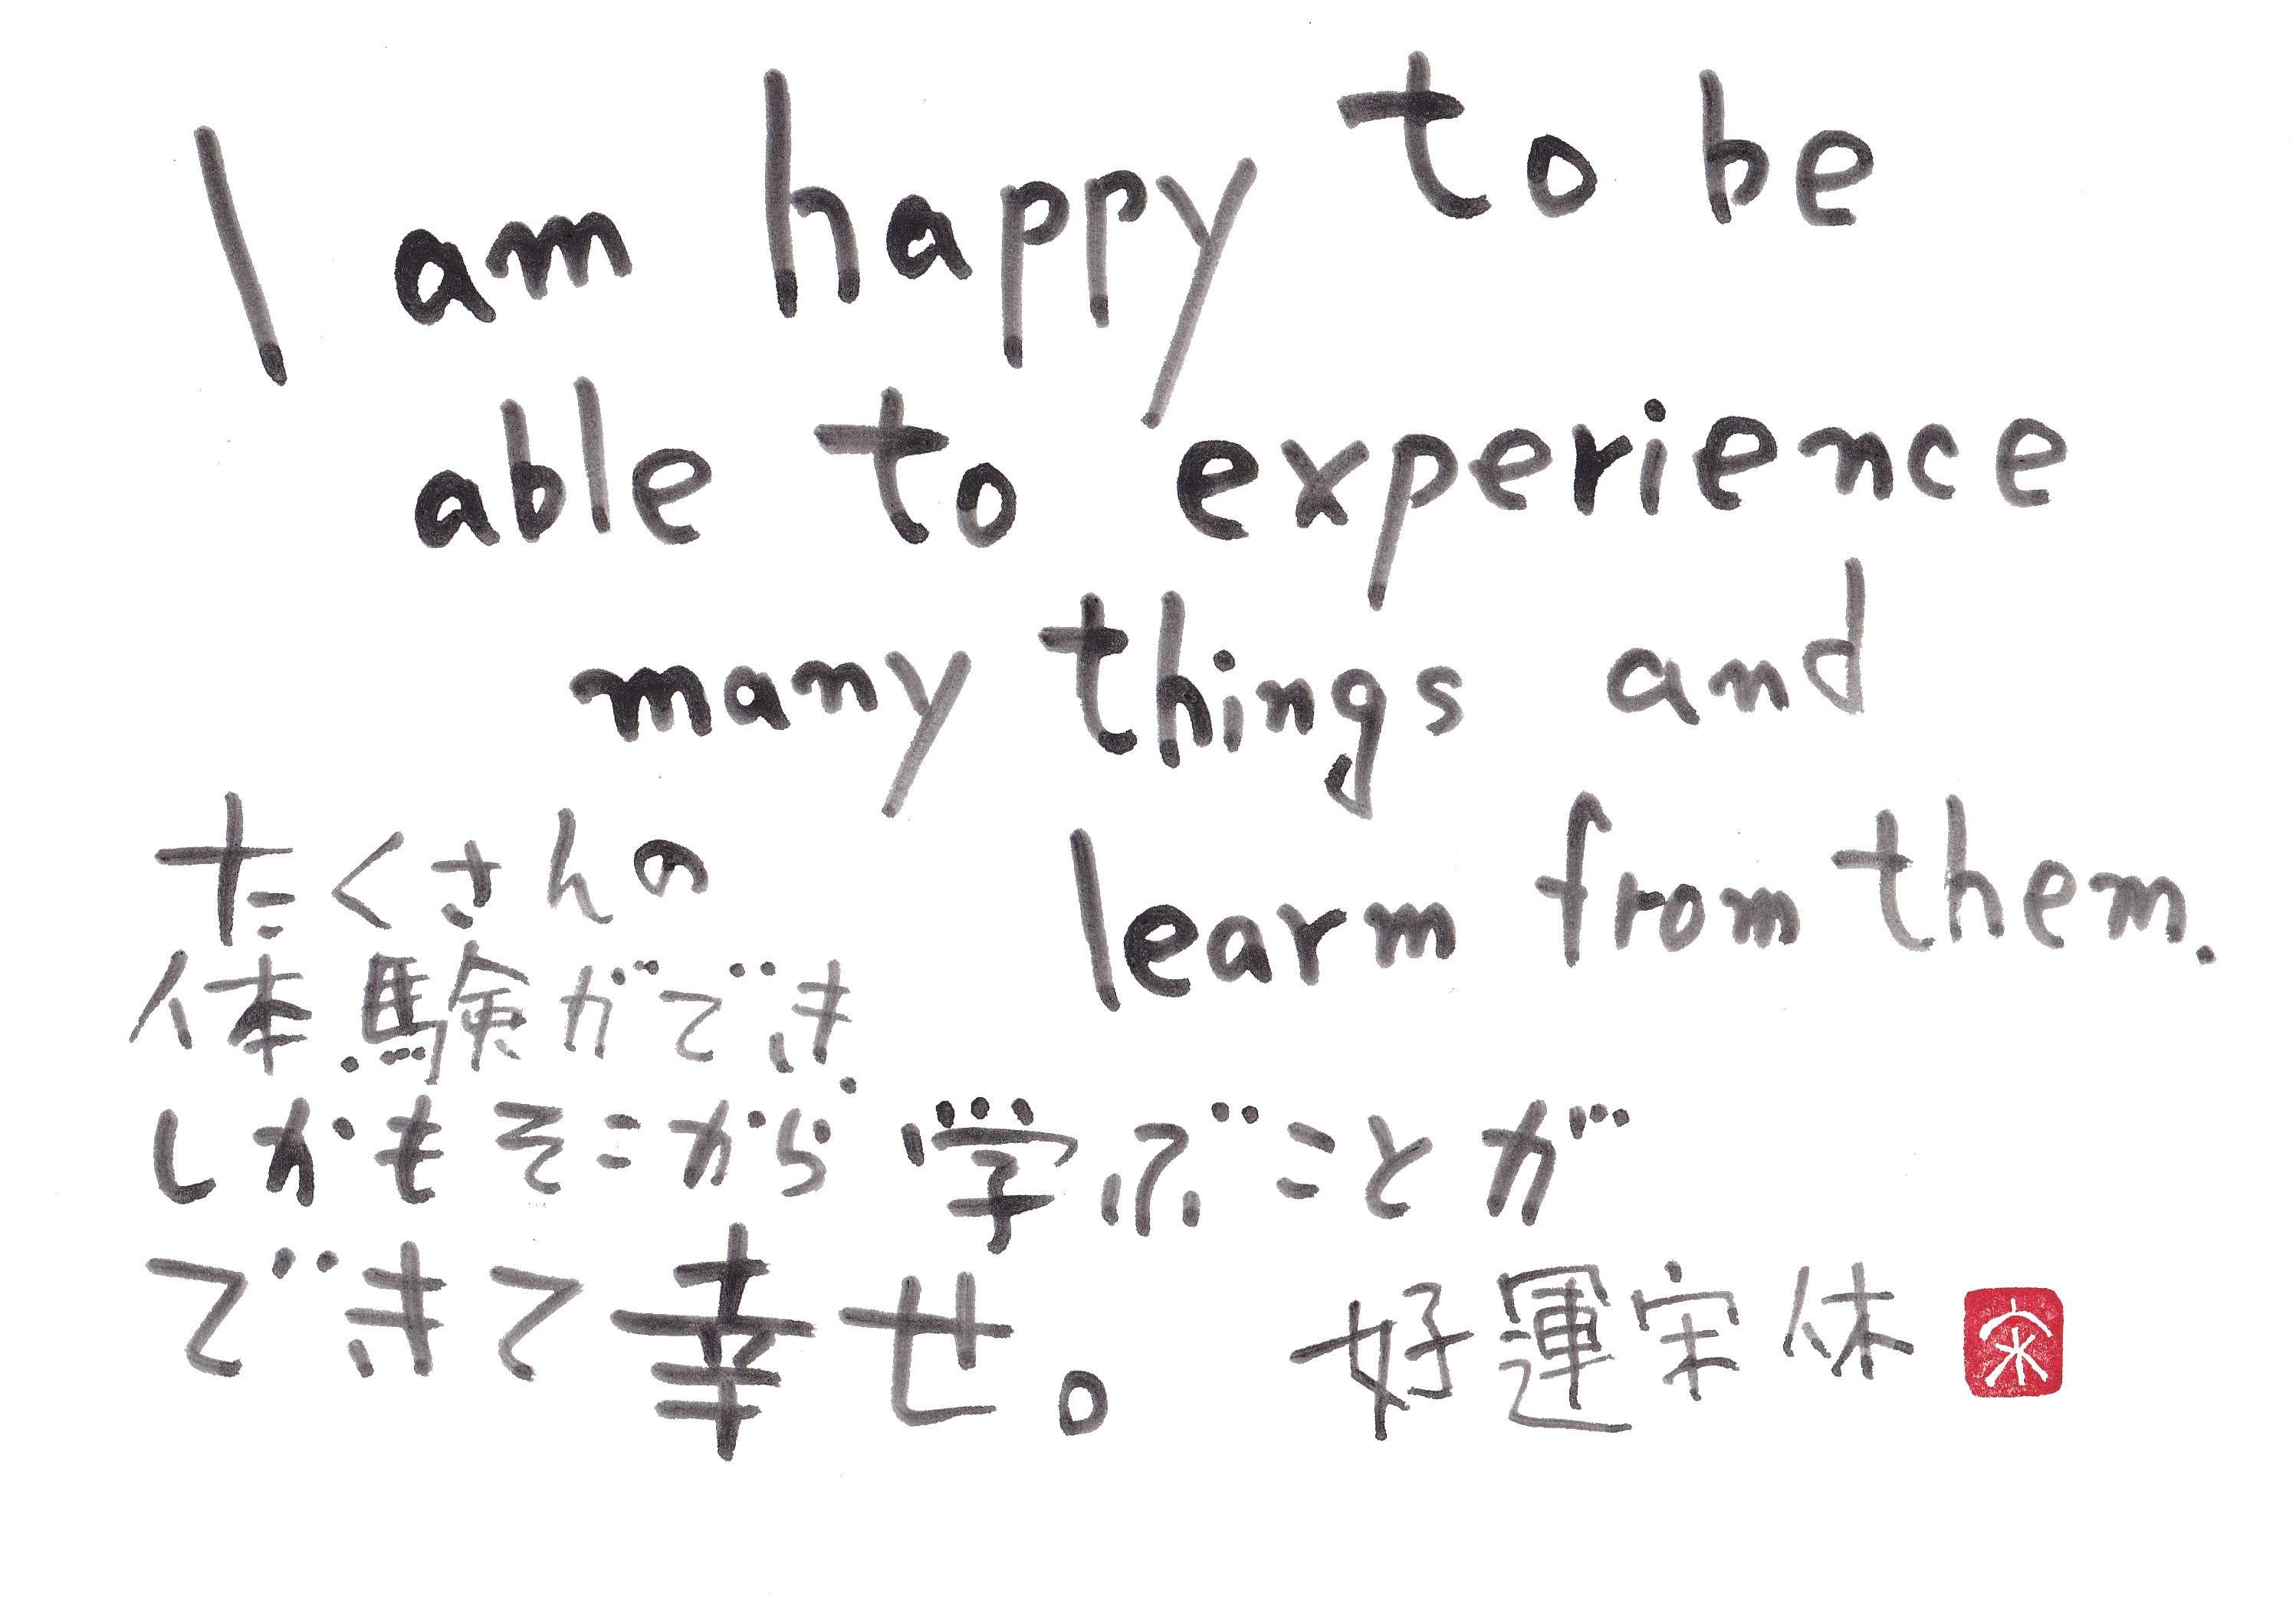 I am happy to be
able to experience
many things and
learm from them.
たくさんの
体験ができ
しかもそこから学ぶことが
できて幸せ。
好運宋休
宋